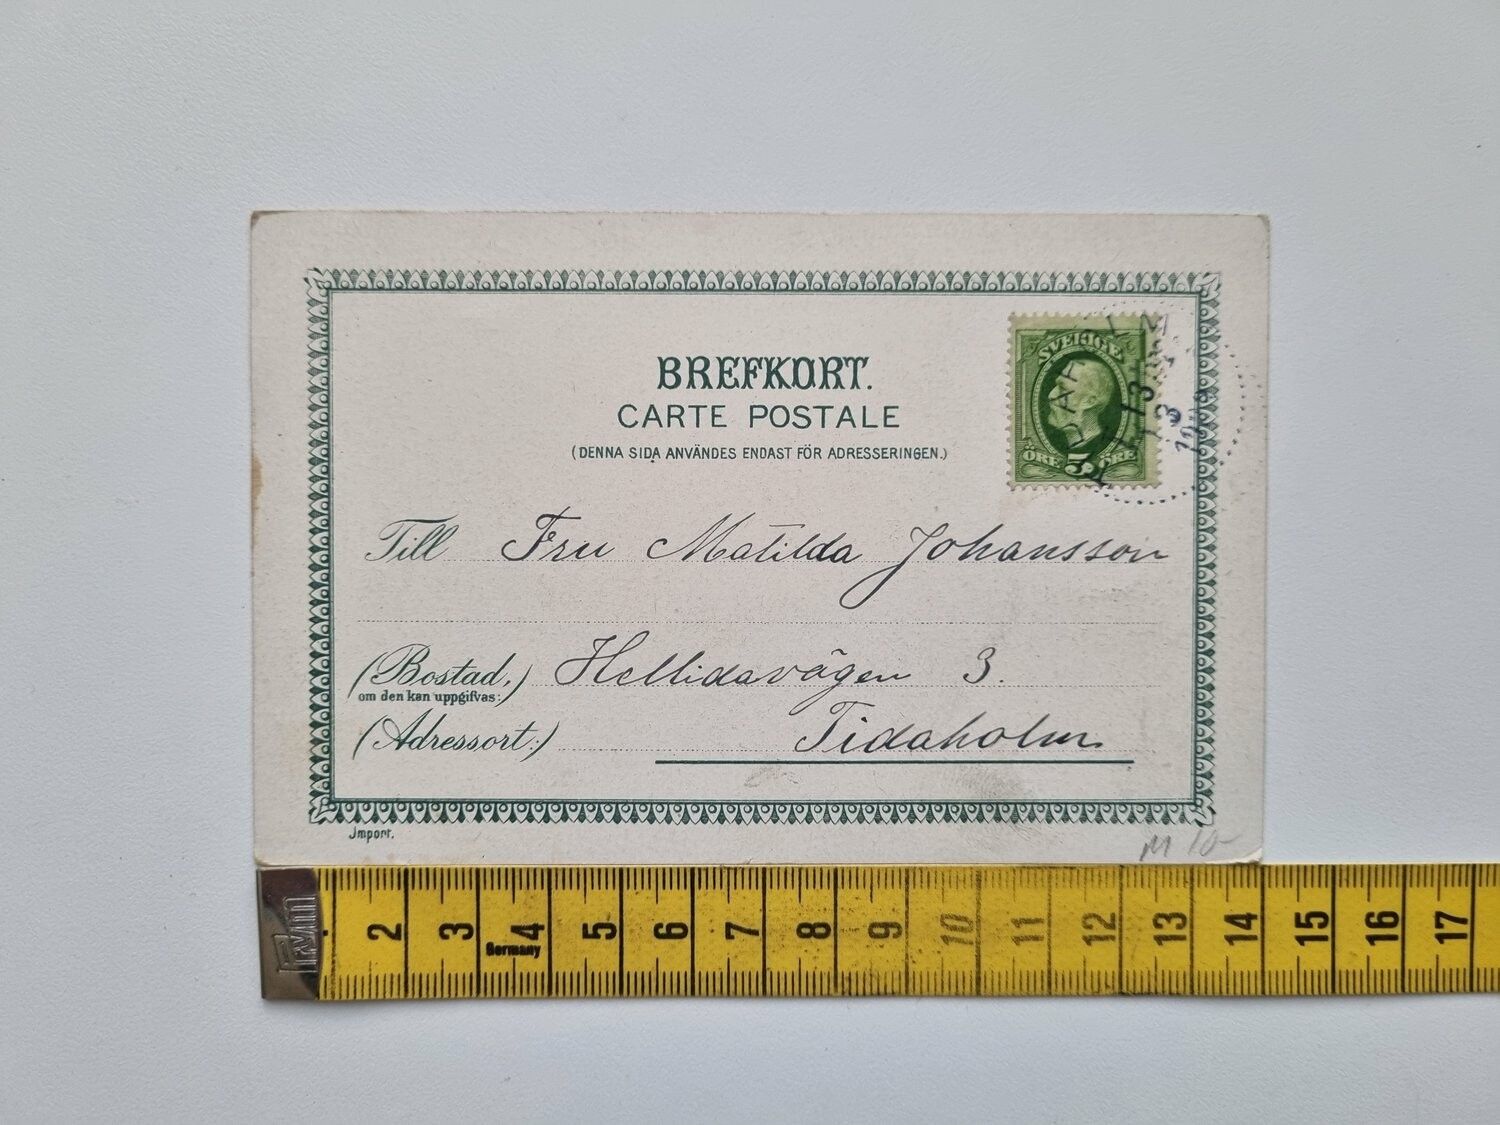 BREFKORT.
CARTE POSTALE
(DENNA SIDA ANVÄNDES ENDAST FÖR ADRESSERINGEN.)
SVERIGE
ÖRE 5 ÖRE
13
3
Till Fru Matilda Johansson
(Bostad,) Hellidavägen 3.
om den kan uppgifvas:
(Adressort:) Tidaholm
Import.
M 10-
2 3 4 5 6 7 8 9 10 11 12 13 14 15 16 17
Germany